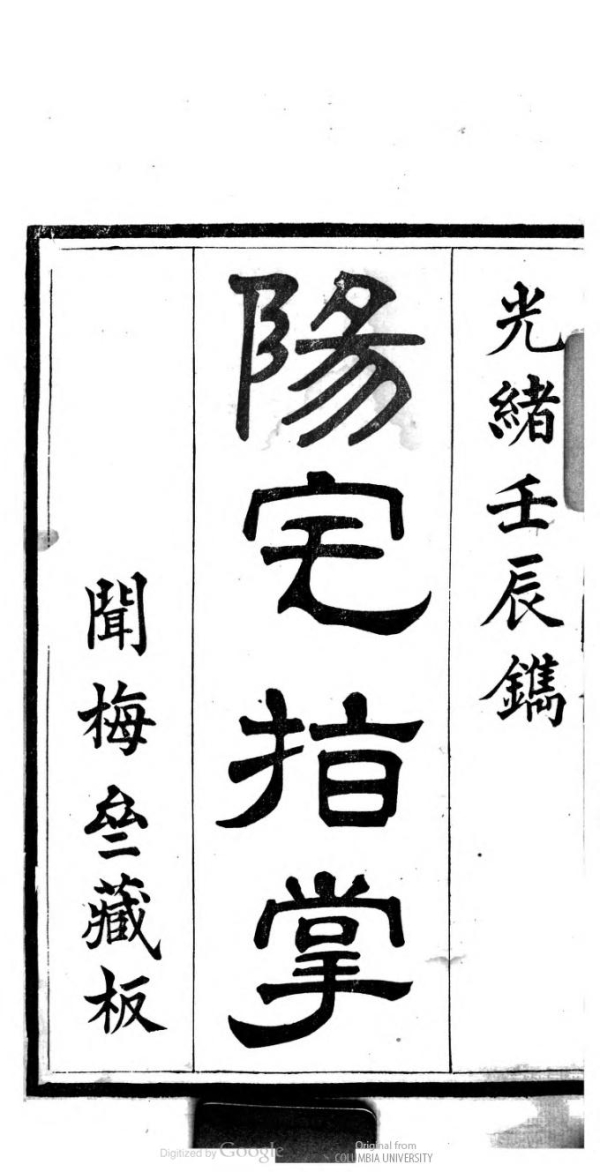 光緒壬辰鐫
陽宅指掌
聞梅亝藏板
Digitized by Google
Original from
COLUMBIA UNIVERSITY